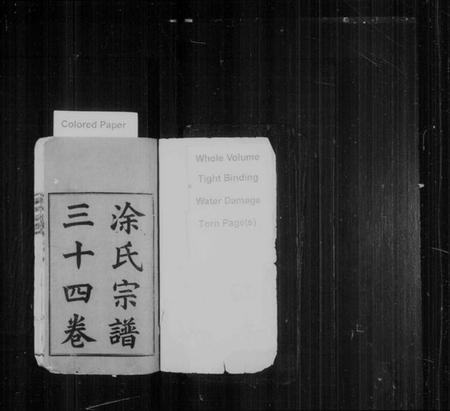 Colored Paper
涂氏宗譜
三十四卷
Whole Volume
Tight Binding
Water Damage
Torn Page(s)